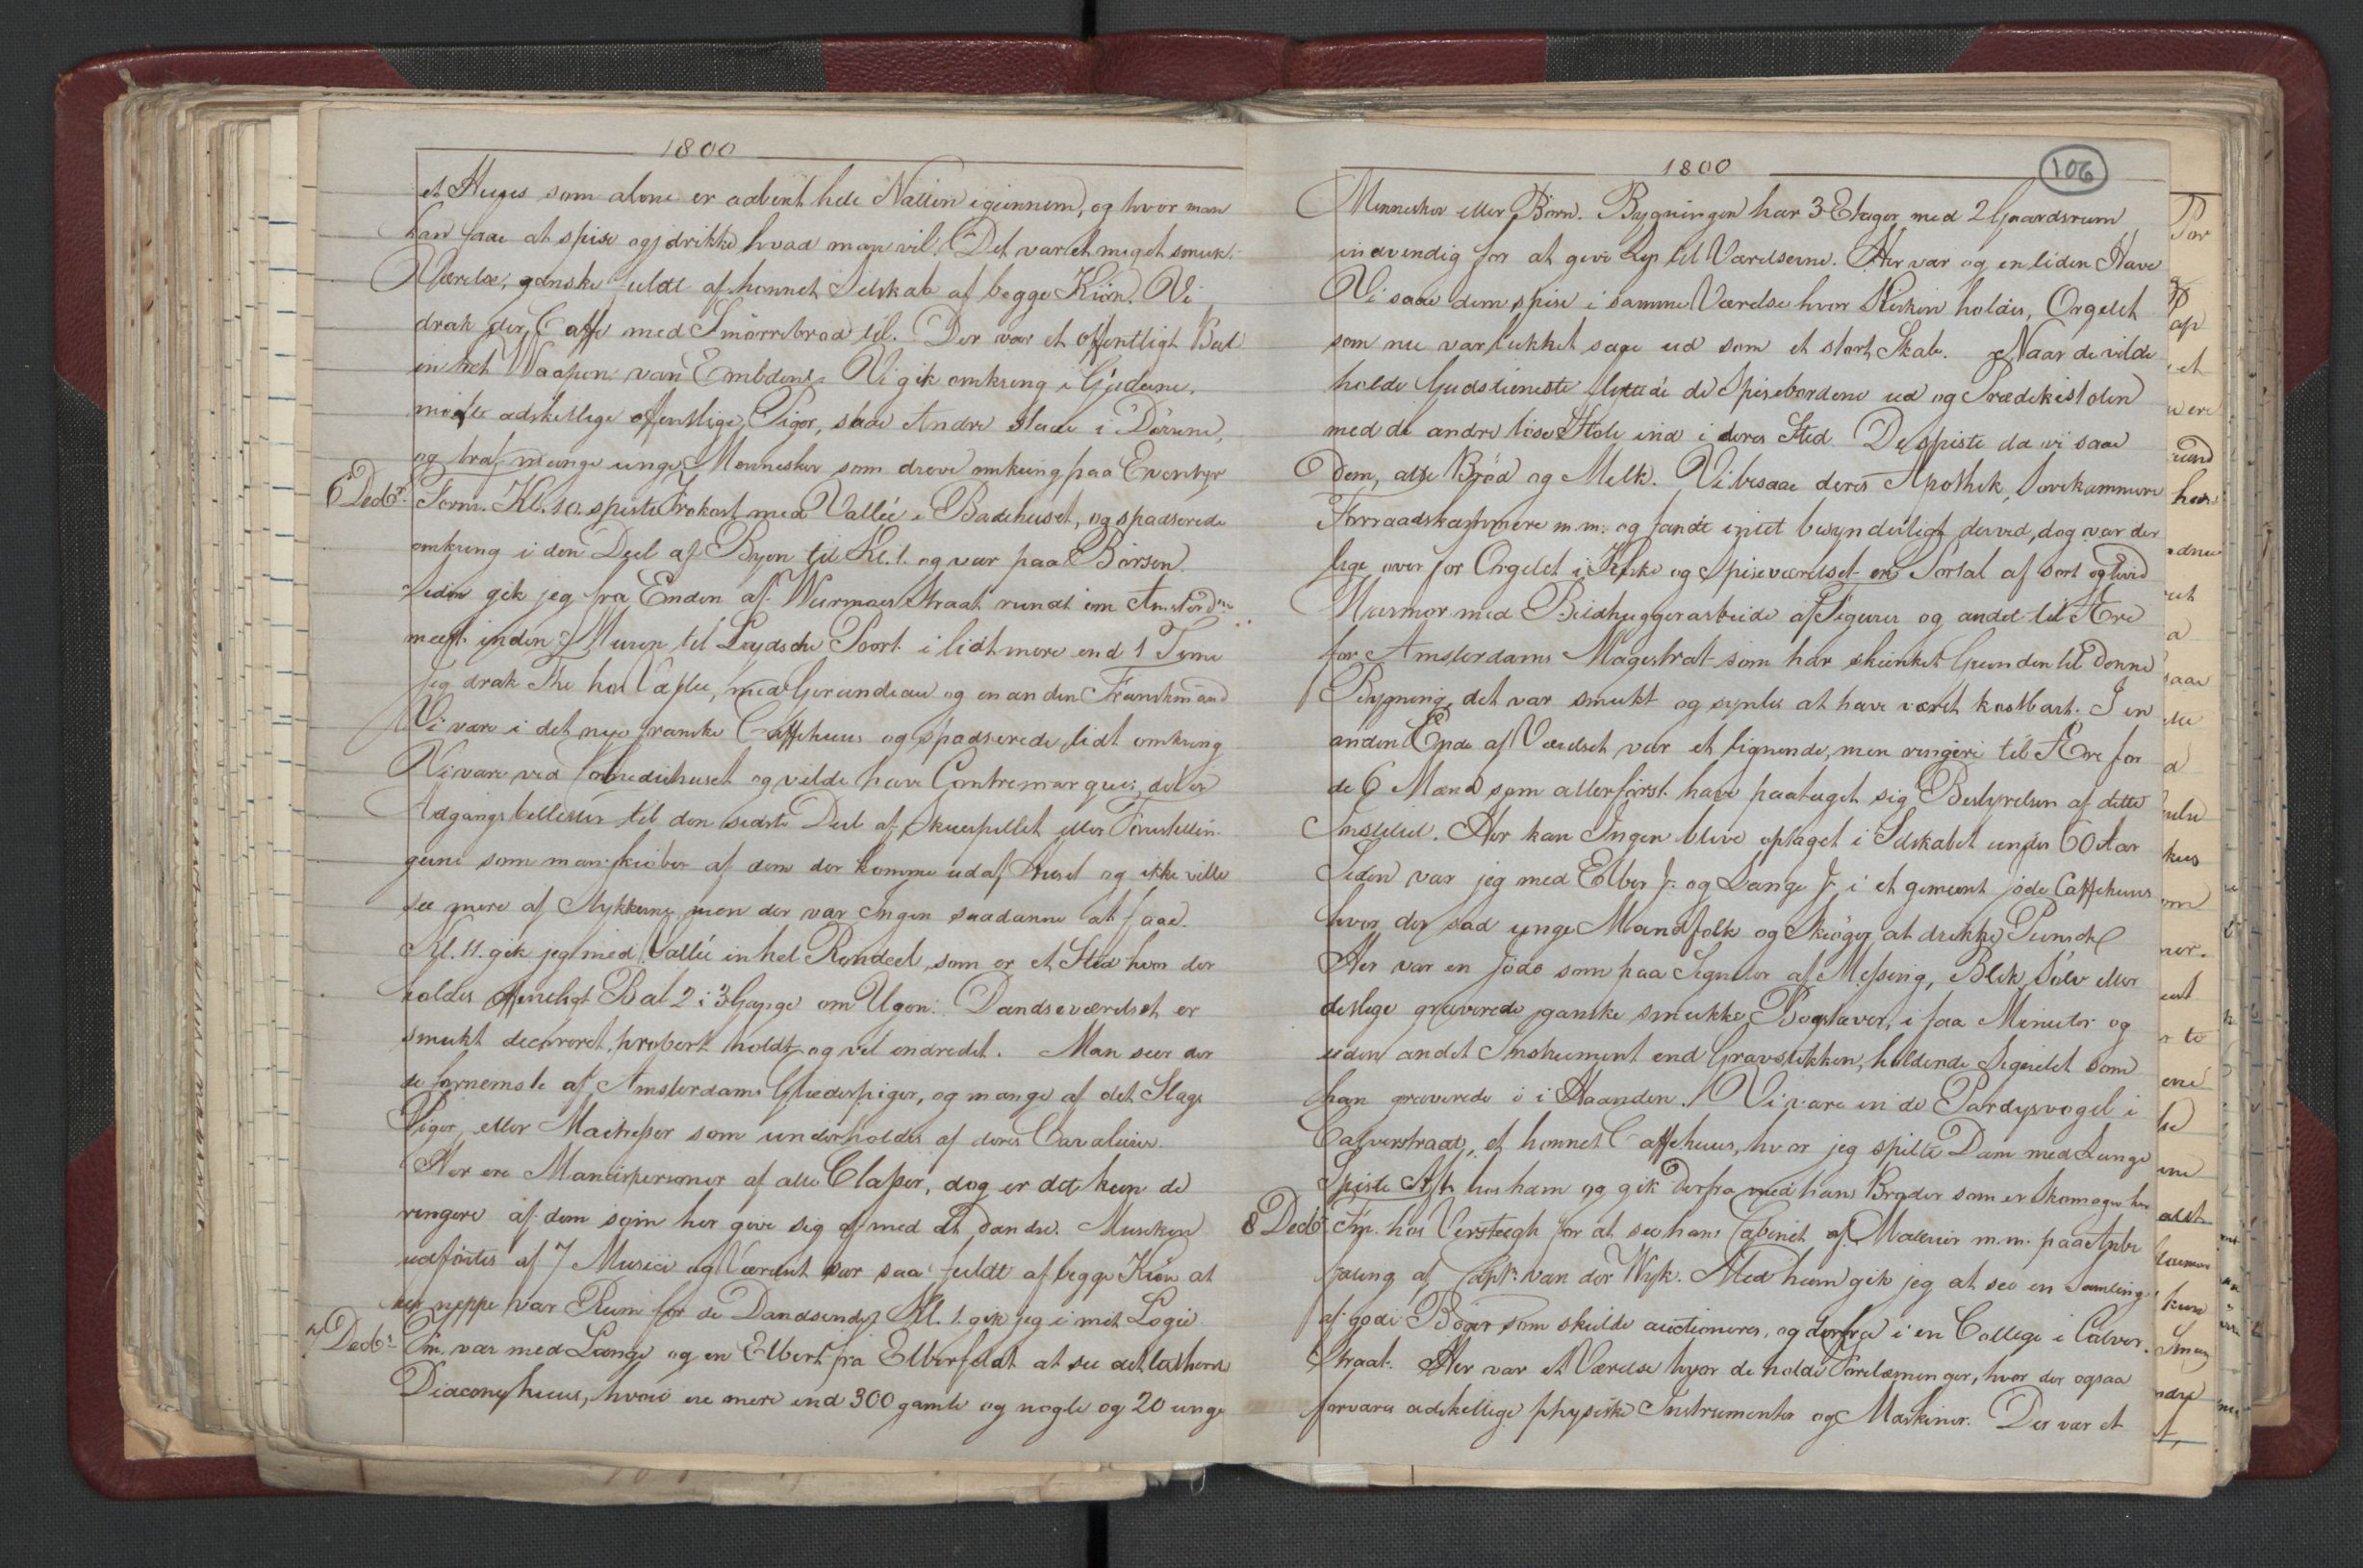 1800
et Huus som alene er aabent hele Natten igiennem, og hvor man
kan faae at spise og drikke hvad man vil. Det var et meget smukt
Værelse, ganske fuldt af honnet Selskab af begge Kiøn. Vi
drak der Caffe med Smørrebrød til. Der var et offentligt Bal
in het Waapen van Embden. Vi gik omkring i Gaderne.
mødte adskillige offentlige Piger, saae Andre staae i Dørrene,
og traf mange unge Mennesker som dreve omkring paa Eventyr
6 Decbr. Form. Kl. 10. spiste Frokost med Vallée i Badehuset, og spadserede
omkring i den Deel af Byen til Kl. 1. og var paa Børsen.
Siden gik jeg fra Enden af Warmoes Straat rundt om Amsterdm
mest inden Muren til Leydsche Poort i lidt mere end 1 Time
Jeg drak The hos Vallée, med Gerandeau og en anden Franskmand
Vi vare i det nye franske Caffehuus og spadserede lidt omkring
Vi vare ved Comediehuset og vilde have Contremarquer, det er
Adgangsbilletter til den sidste Deel af Skuespillet eller Forestillin-
gerne som man kiøber af dem der komme ud af Huset og ikke ville
see mere af Stykkerne, men der var Ingen saadanne at faae.
Kl. 11. gik jeg med Vallée in het Rondeel, som er et Sted hvor der
holdes offentligt Bal 2 i 3 Gange om Ugen. Dandseværelset er
smukt decoreret, propert holdt, og vel indredet. Man seer der
de fornemste af Amsterdams Glædespiger, og mange af det Slags
Piger eller Maitresser som underholdes af deres Cavalerer.
Her ere Mandspersoner af alle Classer, dog er det kun de
ringere af dem som her give sig af med at dandse. Musiken
udførtes af 7 Musici og Værelset var saa fuldt af begge Kiøn at
der neppe var Rum for de Dandsende. Kl. 1. gik jeg i mit Logie
7 Decbr. Fm. var med Lange og en Elbers fra Elberfeldt at see det lutherske
Diaconyhuus, hvori ere mere end 300 gamle og nogle og 20 unge
1800
106
Mennesker eller Børn. Bygningen har 3 Etager med 2 Gaardsrum
indvendig for at give Lys til Værelserne. Her var og en liden Have
Vi saae dem spise i samme Værelse hvor Kirken holdes, Orgelet
som nu var lukket saae ud som et stort Skab. Naar de vilde
holde Gudstieneste flyttede de Spisebordene ud og Prædikestolen
med de andre løse Stole ind i deres Sted. De spiste da vi saae
Dem, alle Brød og Melk. Vi besaae deres Apothek, Sovekammere
Forraadskammere m.m. og fandt intet besynderligt derved, dog var der
lige over for Orgelet i Kirke og Spiseværelset en Portal af sort og hvid
Marmor med Bildhuggerarbeide af Figurer og andet til Ære
for Amsterdams Magistrat som har skienket Grunden til Denne
Bygning, det var smukt og syntes at have været kostbart. I en
anden Ende af Værelset var et lignende, men ringere til Ære for
de 6 Mænd som allerførst have paataget sig Bestyrelsen af dette
Institut. Her kan Ingen blive optaget i Selskabet under 60 Aar
Siden var jeg med Elber Jr. og Lange Jr. i et gemeent jøde Caffehuus
hvor der sad unge Mandfolk og Skiøger at drikke Punsch
Her var en Jøde som paa Signeter af Messing, Blik, Sølv eller
deslige graverede ganske smukke Bogstaver, i faa Minuter og
uden andet Instrument end Gravstikken, holdende Signetet som
han graverede i i Haanden. Vi vare in de Paradysvogel i
Calverstraat, et honnet Caffehuus, hvor jeg spilte Dam med Lange
Spiste Aft. hos ham og gik derfra med hans Broder som er Skomager her
8 Decbr. Fm. hos Versteegh for at see hans Cabinet af Malerier m.m. paa Anbe
faling af Capt. van der Wyk. Med ham gik jeg at see en Samling
af gode Bøger som skulde auctioneres, og derfra i en College i Calver-
straat. Her var et Værelse hvor de holde Forelæsninger, hvor der ogsaa
forvares adskillige physiske Instrumenter og Maskiner. Der var et